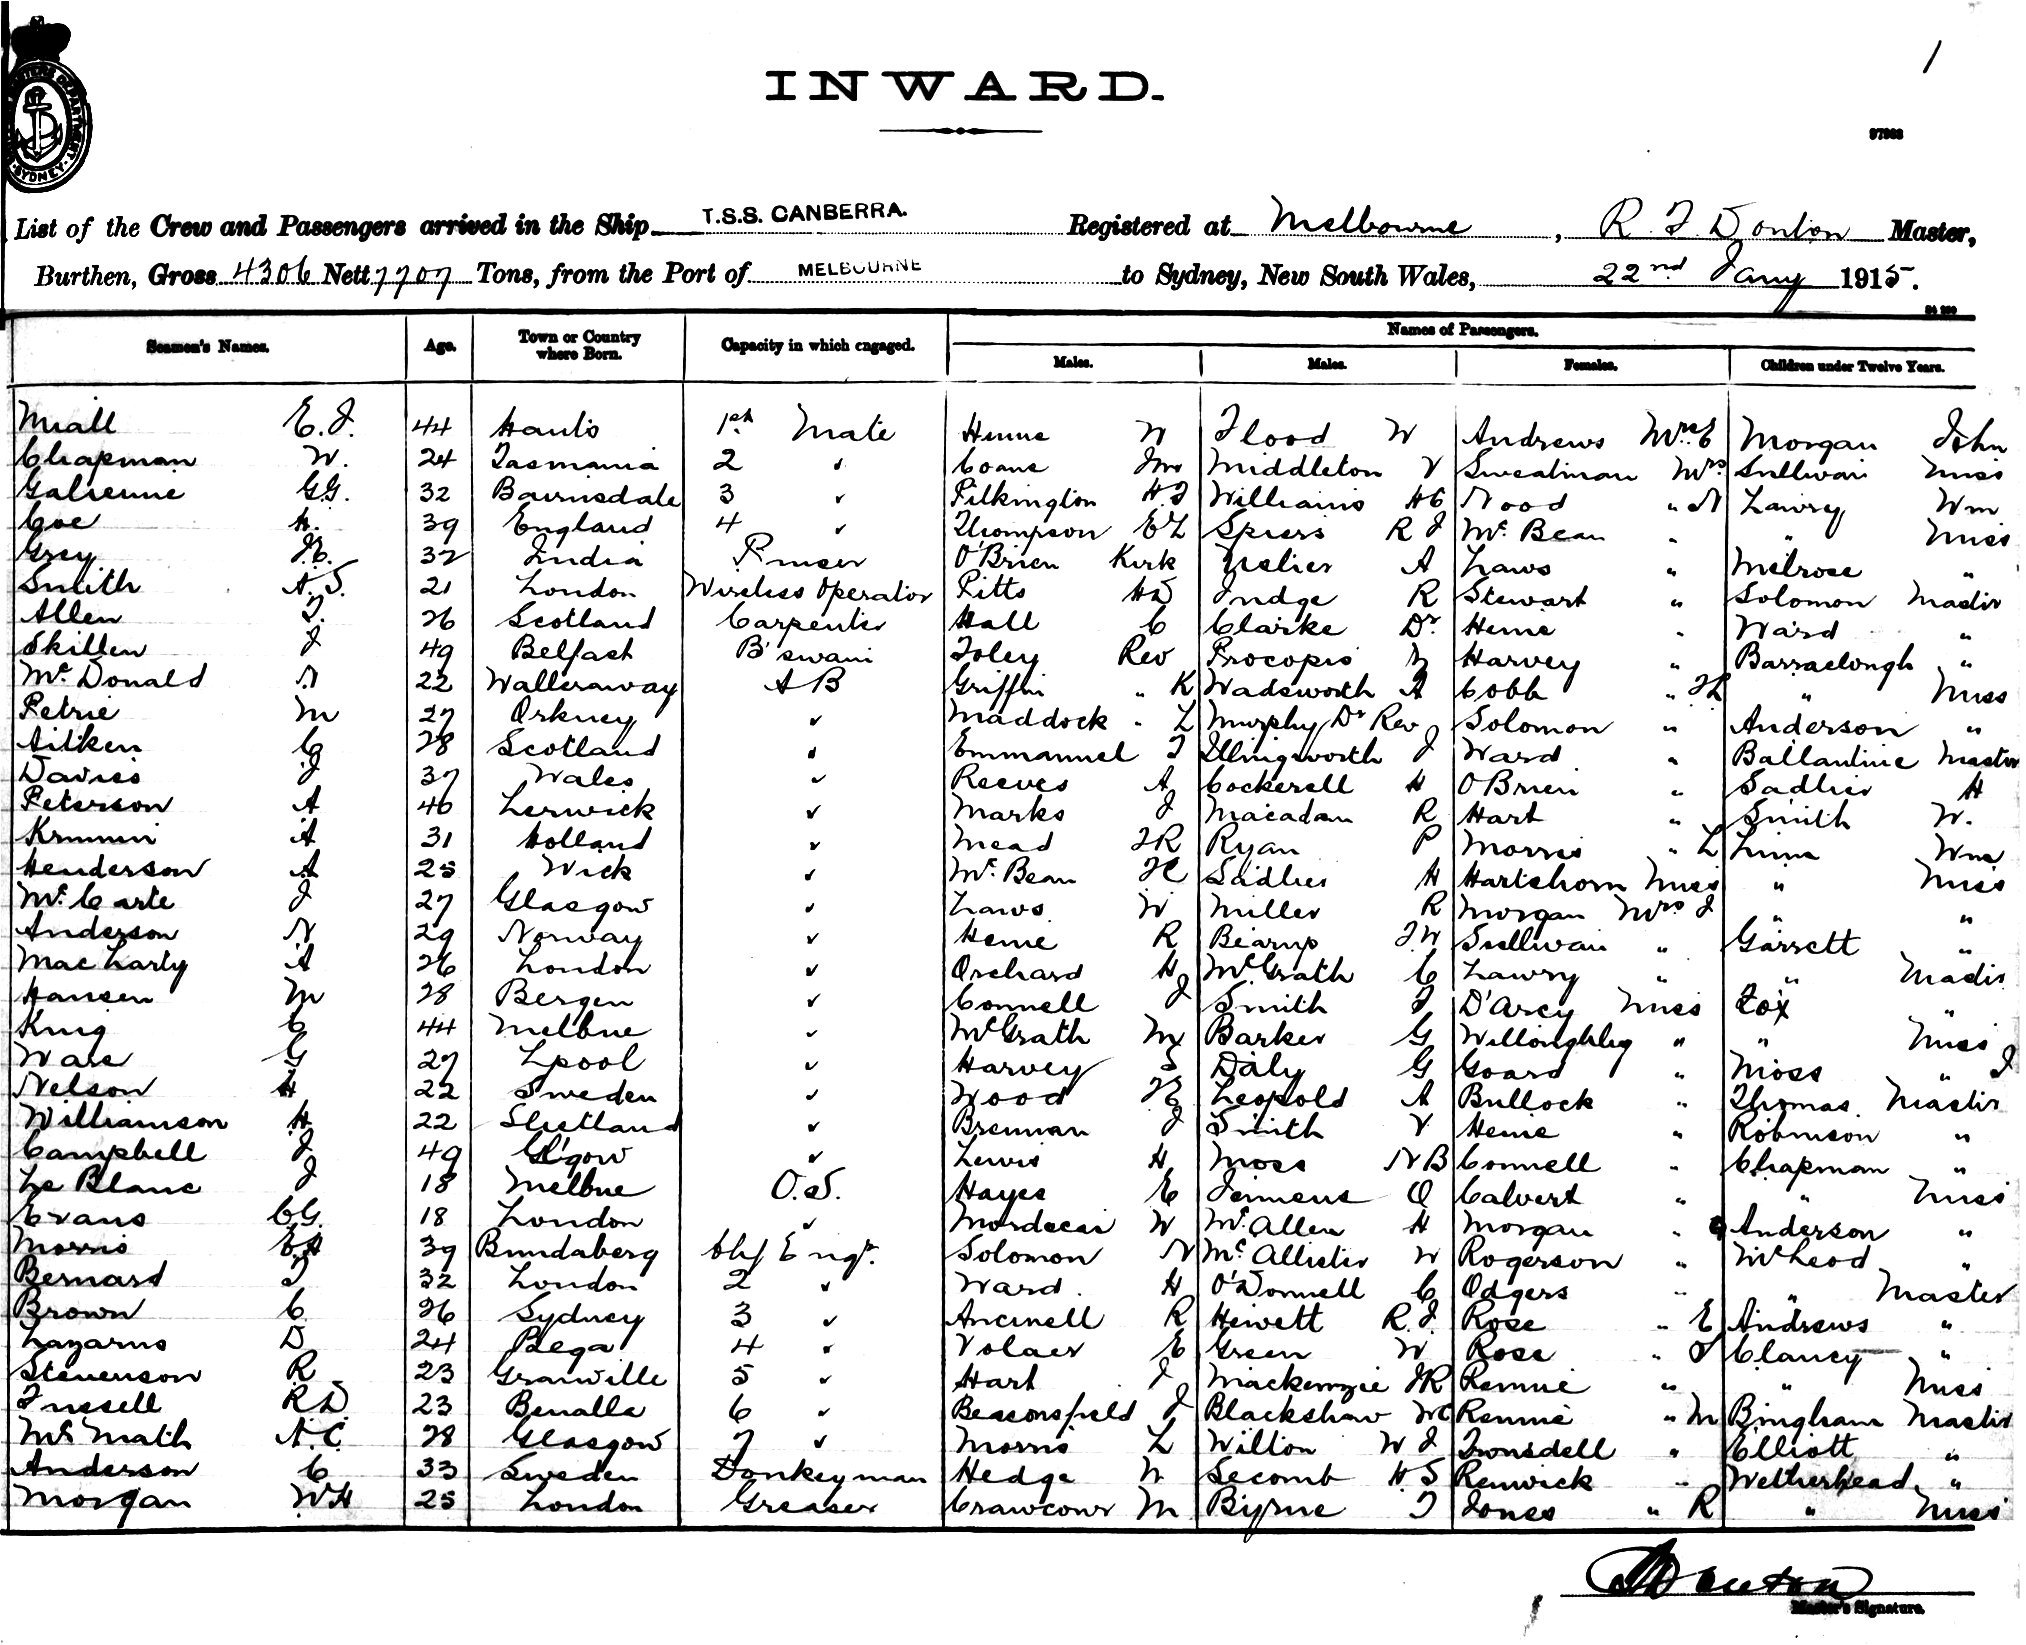 1
INWARD.
97963
SYDNEY
List of the Crew and Passengers arrived in the Ship T.S.S. CANBERRA. Registered at Melbourne, R. J. Donton Master,
Burthen, Gross 4306 Nett 7707 Tons, from the Port of MELBOURNE to Sydney, New South Wales, 22nd Jany 1915.
Names of Passengers.
Seamen's Names. Age. Town or Country where Born. Capacity in which engaged. Males. Males. Females. Children under Twelve Years.
Miall E. J. 44 Hants 1st Mate Henne W Flood W Andrews Mrs E Morgan John
Chapman W. 24 Tasmania 2 " Coane Jno Middleton V Sweatman Mrs Sullivan Miss
Galienne GG. 32 Bairnsdale 3 " Pilkington H.J Williams HC Wood " N Lawry Wm
Coe H. 39 England 4 " Thompson EL Spiers R J McBean " " Miss
Grey 32 India Purser O'Brien Kirk A Laws " Melrose "
Smith A. S. 21 London Wireless Operator Pitts HD Judge R Stewart " Solomon Master
Allen T. 26 Scotland Carpenter Hall C Clarke Dr Heine " Ward "
Skillen J 49 Belfast B'swain Foley Rev Procopis Harvey " Barraclough "
McDonald N 22 Walleraway A B Griffin " K Wadsworth A Cobb " " Miss
Petrie M 27 Orkney " Maddock " L Murphy Dr Rev Solomon " Anderson "
Aitken G 28 Scotland " Emmanuel J Illingworth J Ward " Ballantine Master
Davies J 37 Wales " Reeves A Cockerell H O'Brien " Sadlier H
Peterson A 46 Lerwick " Marks J Macadam R Hart " Smith W.
A 31 Holland " Mead JR Ryan P Morris " L Wm
Henderson A 25 Wick " McBean Sadlier H Hartshorn Miss " Miss
McCarte J 27 Glasgow " Laws W Miller R Morgan Mrs J " "
Anderson N 29 Norway " Heine R Bearup J.W Sullivan " Garrett "
MacLarty A 26 London " Orchard H McGrath C Lawry " " Master
Hansen M 28 Bergen " Connell J Smith J D'Arcy Miss Fox "
King C 44 Melbne " McGrath M Barker G Willoughby " " Miss
Ware G 27 Lpool " Harvey S Daly G Goard " Moss " J
Nelson H 22 Sweden " Wood Leopold A Bullock " Thomas Master
Williamson H 22 Shetland " Brennan J Smith V Heine " Robinson "
Campbell J 49 Gl'gow " Lewis H Moss NB Connell " Chapman "
Le Blanc J 18 Melbne O.S. Hayes E O Calvert " " Miss
Evans CG. 18 London " Mordecai W McAllen H Morgan " Anderson "
Morris EA 39 Bundaberg Chf Engr. Solomon N McAllister W Rogerson " McLeod "
Bernard J 32 London 2 " Ward H O'Donnell C Odgers " " Master
Brown C. 26 Sydney 3 " Ancinell R Hewett R.J. Rose " E Andrews "
Lazarus D 24 Bega 4 " Volaer E Green W Rose " Clancy "
Stevenson R 23 Granville 5 " Hart J Mackenzie JR Rennie " " Miss
Fussell RD 23 Benalla 6 " Beaconsfield J Blackshaw WC Rennie " M Bingham Master
McMath A.C. 28 Glasgow 7 " Morris L Wilton W J Trousdell " Elliott "
Anderson C 33 Sweden Donkeyman Hedge W Secomb H.S Renwick " Wetherhead "
Morgan WH 25 London Greaser Crawcour M Byrne J Jones " R " Miss
Donton
Master's Signature.